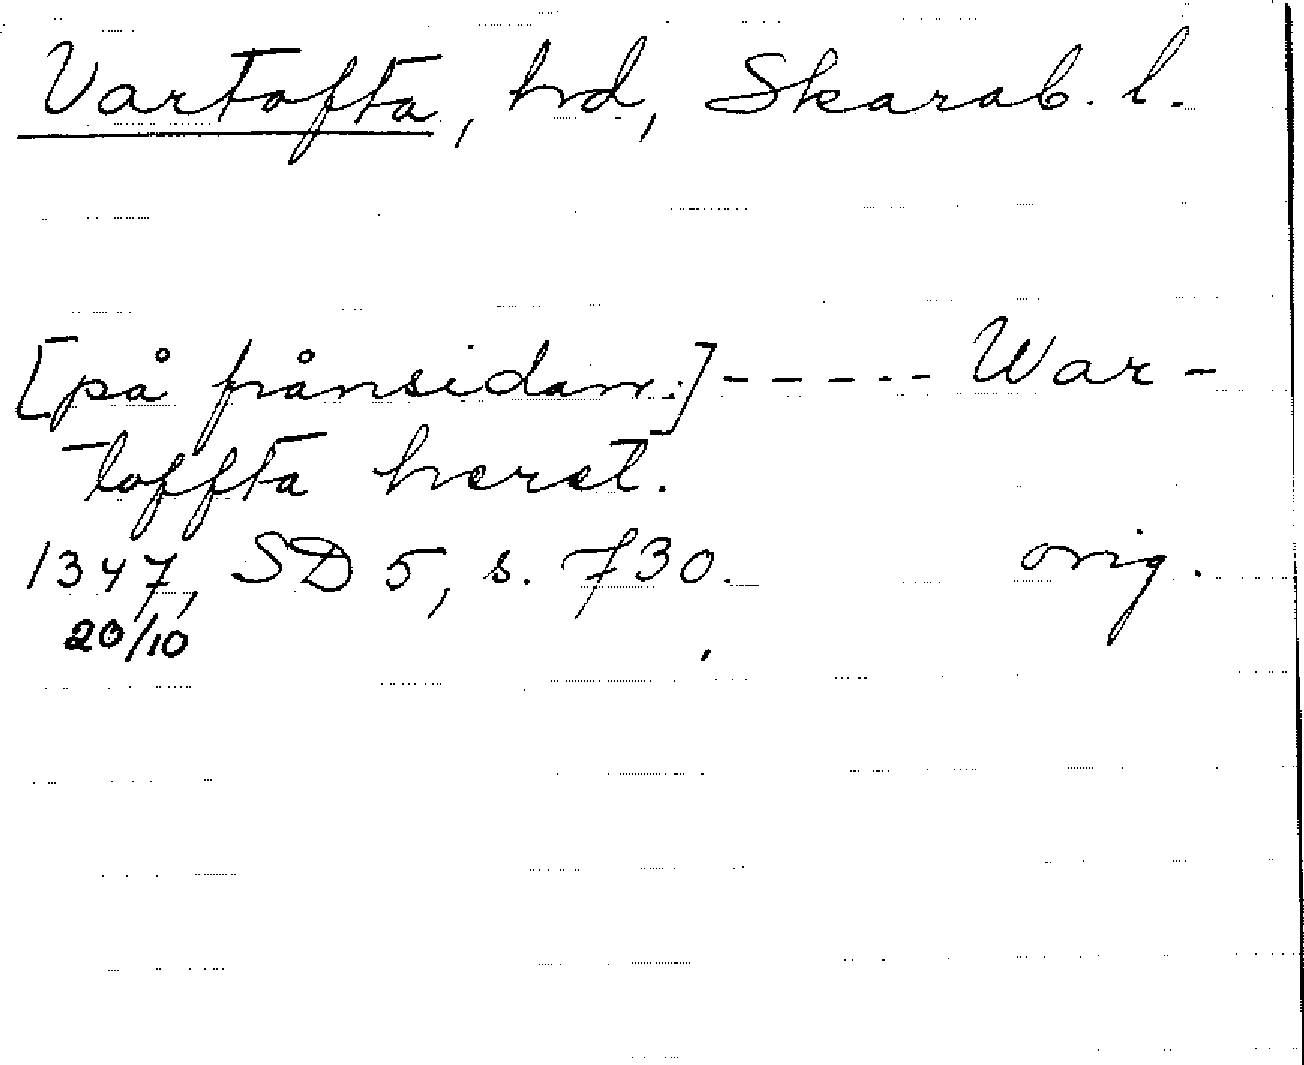 Vartofta, hd, Skarab. l.
[på frånsidan:] - - - - - War-
toffta hæret.
1347, SD 5, s. 730. orig.
20/10